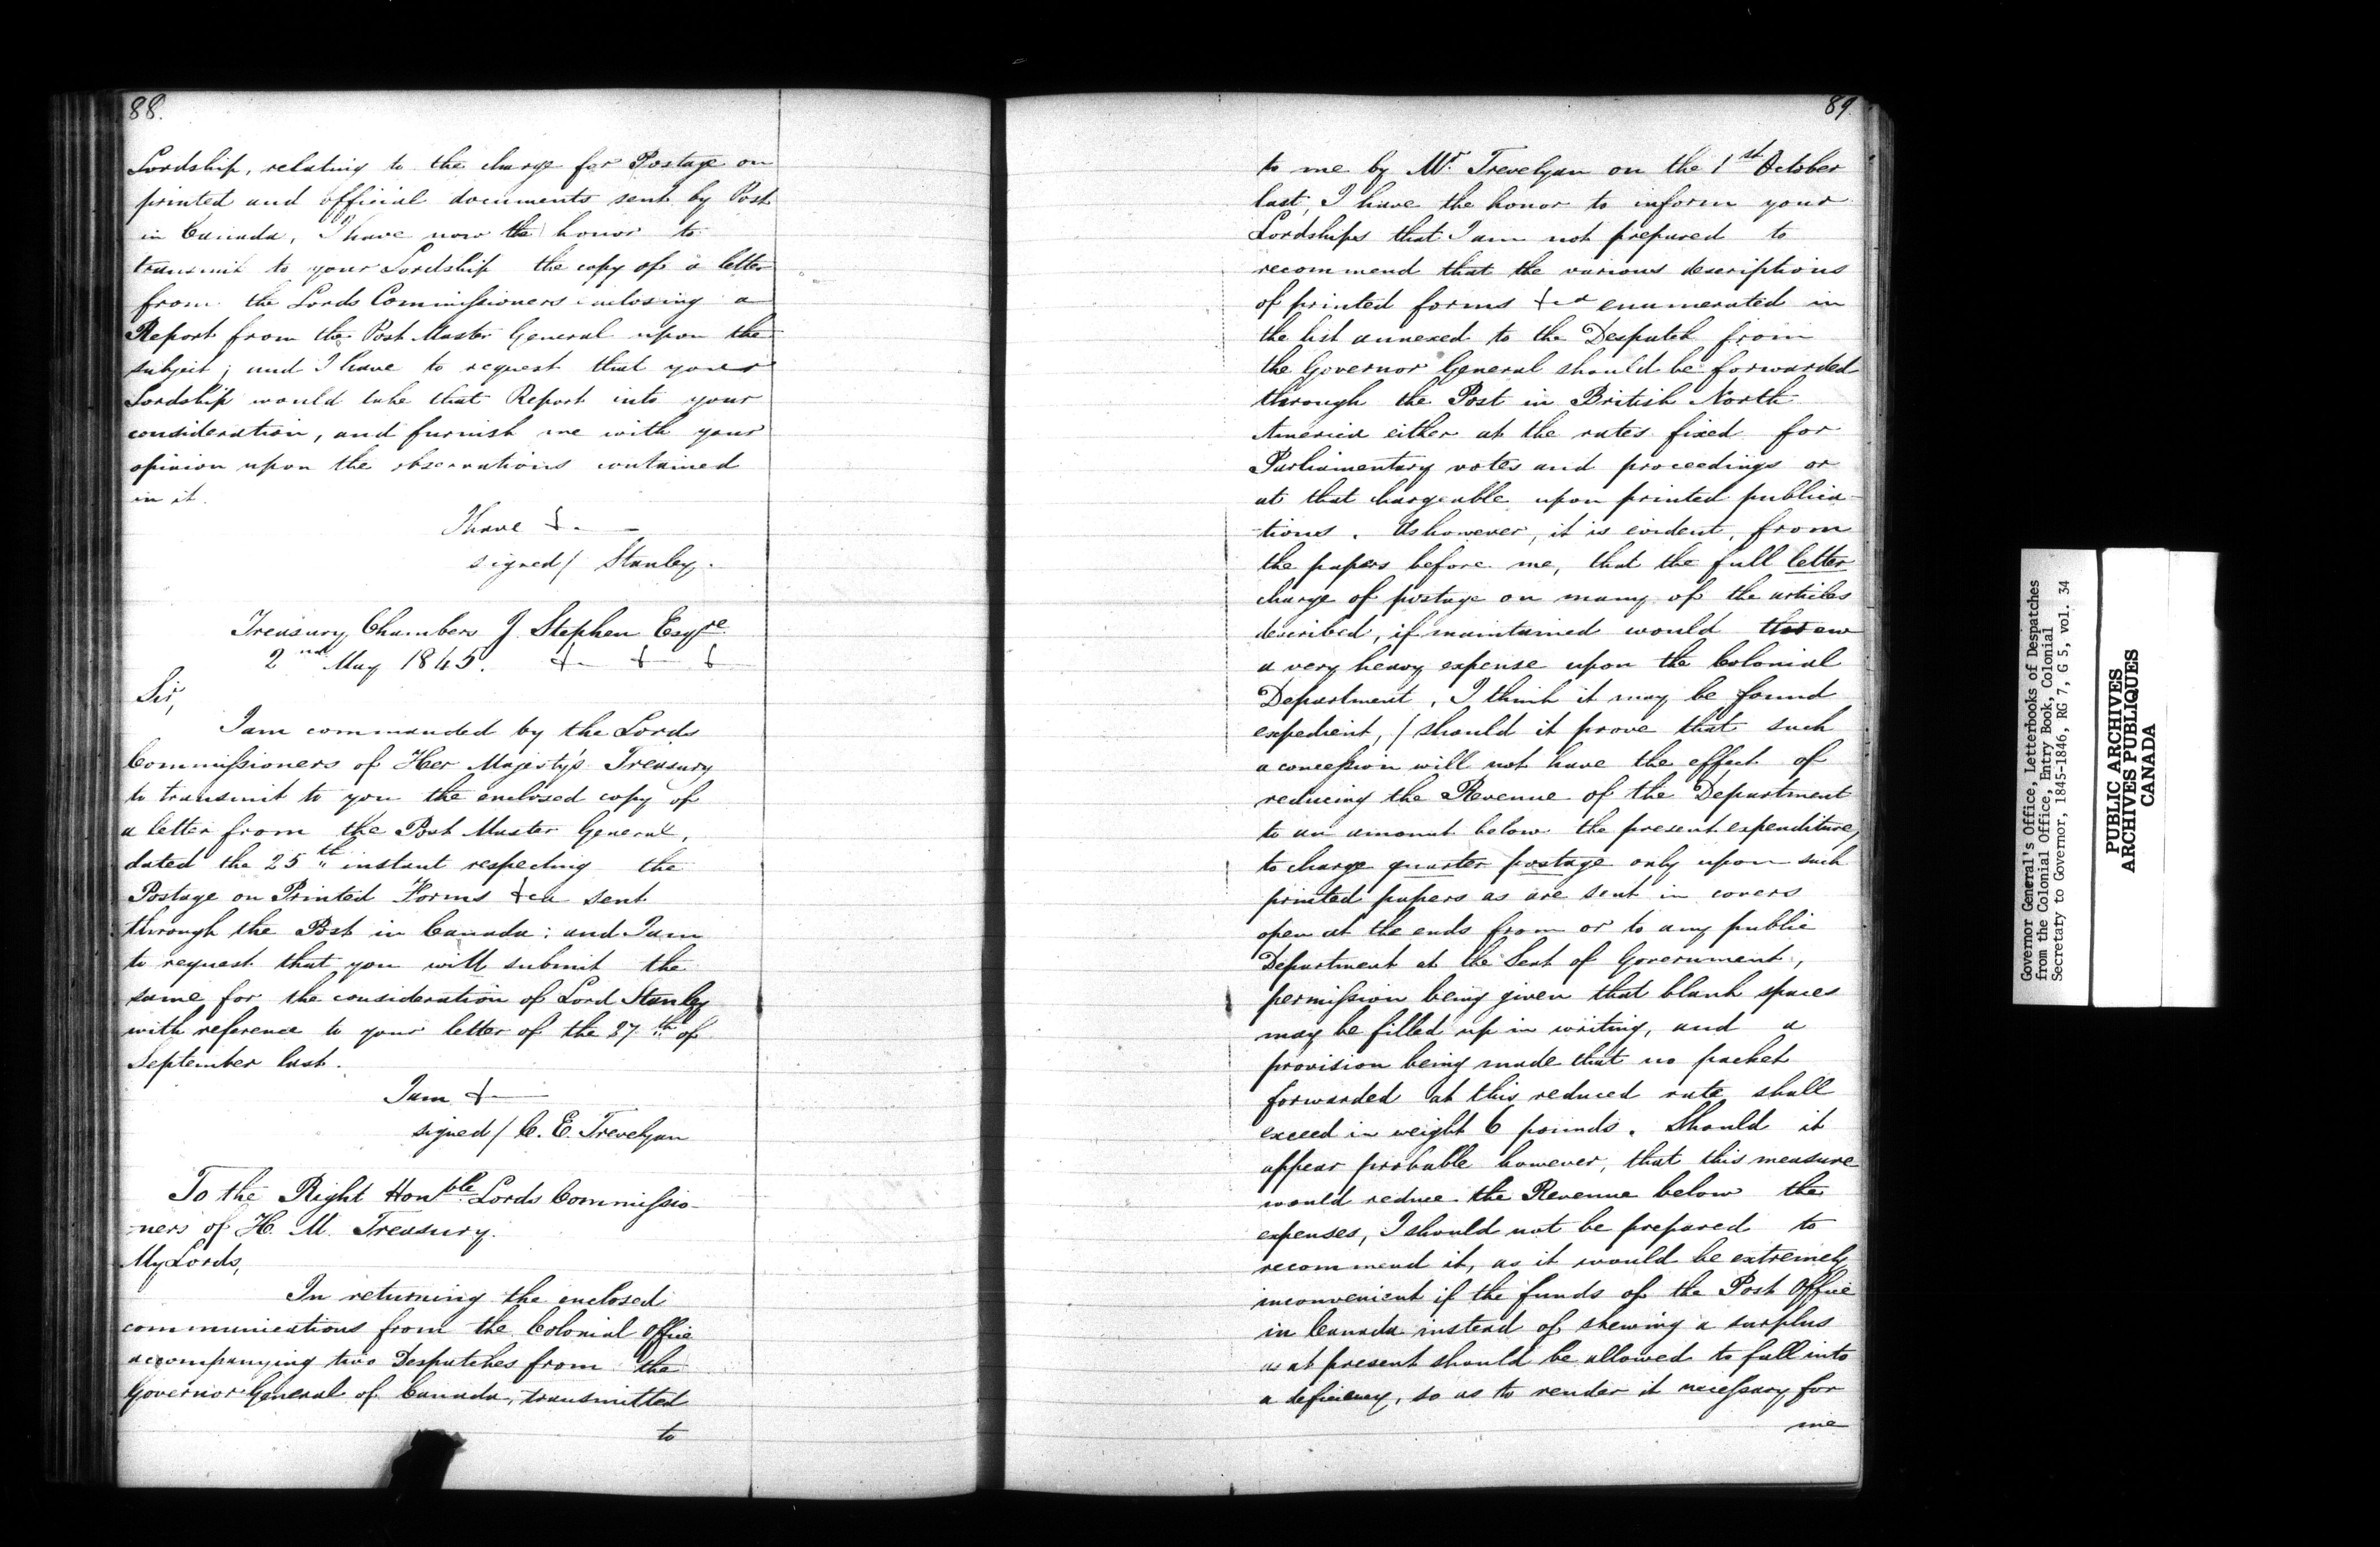 88.
Lordship, relating to the charge for Postage on
printed and official documents sent by Post
in Canada, I have now the honor to
transmit to your Lordship the copy of a letter
from the Lords Commissioners inclosing a
Report from the Post Master General upon the
subject; and I have to request that your
Lordship would take that Report into your
consideration, and furnish me with your
opinion upon the observations contained
in it.
I have &.
signed / Stanley.
Treasury Chambers J. Stephen Esqre
2nd May 1845. & & &
Sir,
I am commanded by the Lords
Commissioners of Her Majesty's Treasury
to transmit to you the enclosed copy of
a letter from the Post Master General,
dated the 25th instant respecting the
Postage on Printed Forms &ca sent
through the Post in Canada: and I am
to request that you will submit the
same for the consideration of Lord Stanley
with reference to your letter of the 27th of
September last.
I am &
signed / C. E. Trevelyan
To the Right Honble Lords Commissio-
-ners of H. M. Treasury.
My Lords,
In returning the enclosed
communications from the Colonial Office
accompanying two Despatches from the
Governor General of Canada, transmitted
to
89.
to me by Mr. Trevelyan on the 1st October
last, I have the honor to inform your
Lordships that I am not prepared to
recommend that the various descriptions
of printed forms &ca enumerated in
the list annexed to the Despatch from
the Governor General should be forwarded
through the Post in British North
America either at the rates fixed for
Parliamentary votes and proceedings or
at that chargeable upon printed publica-
-tions. As however, it is evident, from
the papers before me, that the full letter
charge of postage on many of the articles
described, if maintained would throw
a very heavy expense upon the Colonial
Department, I think it may be found
expedient, / should it prove that such
a concession will not have the effect of
reducing the Revenue of the Department
to an amount below the present expenditure,
to charge quarter postage only upon such
printed papers as are sent in covers
open at the ends from or to any public
Department at the Seat of Government,
permission being given that blank spaces
may be filled up in writing, and a
provision being made that no packet
forwarded at this reduced rate shall
exceed in weight 6 pounds. Should it
appear probable however, that this measure
would reduce the Revenue below the
expenses, I should not be prepared to
recommend it, as it would be extremely
inconvenient if the funds of the Post Office
in Canada instead of shewing a surplus
as at present should be allowed to fall into
a deficiency, so as to render it necessary for
me
Governor General's Office, Letterbooks of Despatches
from the Colonial Office, Entry Book, Colonial
Secretary to Governor, 1845-1846, RG 7, G 5, vol. 34
PUBLIC ARCHIVES
ARCHIVES PUBLIQUES
CANADA